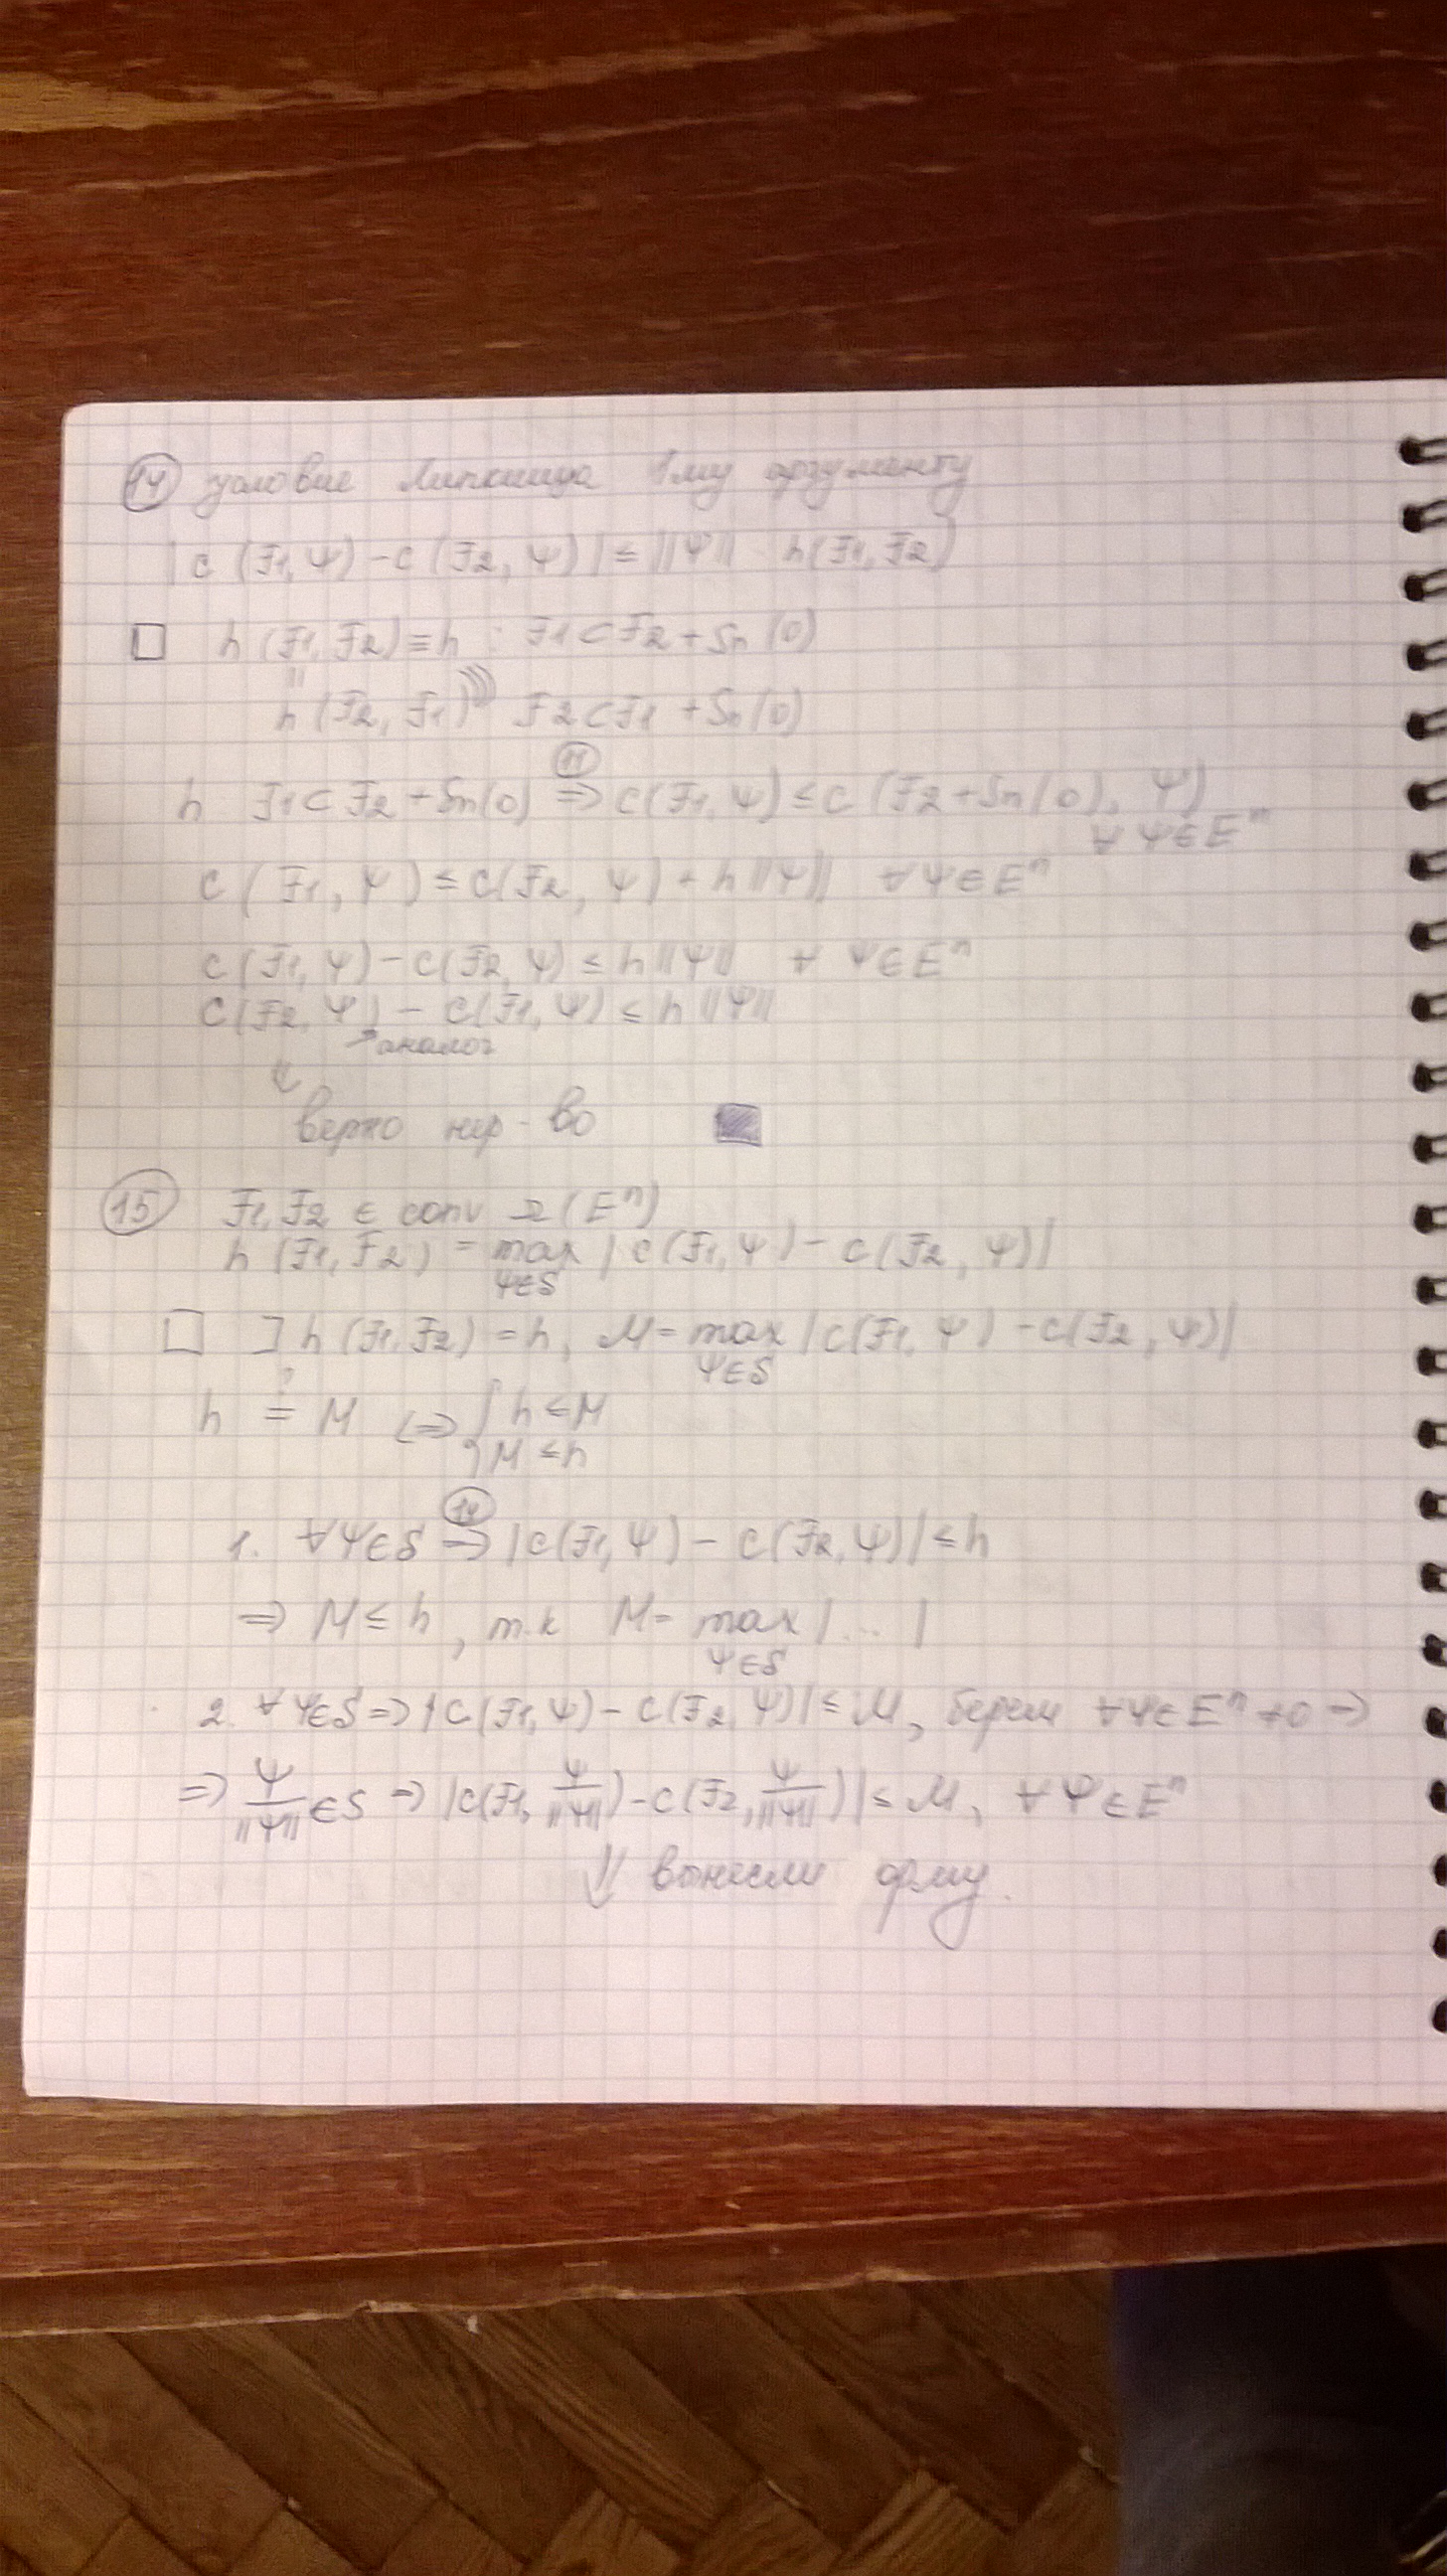 14 условие Липшица 1му аргументу
|c(F1, Ψ) - c(F2, Ψ)| ≤ ||Ψ|| h(F1, F2)
□ h(F1, F2) = h : F1 ⊂ F2 + Sh(0)
h(F2, F1) F2 ⊂ F1 + Sh(0)
h F1 ⊂ F2 + Sh(0) ⇒ c(F1, Ψ) ≤ c(F2 + Sh(0), Ψ)
∀ Ψ ∈ Eⁿ
c(F1, Ψ) ≤ c(F2, Ψ) + h||Ψ|| ∀ Ψ ∈ Eⁿ
c(F1, Ψ) - c(F2, Ψ) ≤ h||Ψ|| ∀ Ψ ∈ Eⁿ
c(F2, Ψ) - c(F1, Ψ) ≤ h||Ψ||
аналог
верно нер-во
15 F1, F2 ∈ conv Ω(Eⁿ)
h(F1, F2) = max |c(F1, Ψ) - c(F2, Ψ)|
Ψ∈S
□ ] h(F1, F2) = h, M = max |c(F1, Ψ) - c(F2, Ψ)|
Ψ∈S
h = M ⇔ { h ≤ M
M ≤ h
14
1. ∀Ψ∈S ⇒ |c(F1, Ψ) - c(F2, Ψ)| ≤ h
⇒ M ≤ h, т.к M = max |...|
Ψ∈S
2. ∀Ψ∈S ⇒ |c(F1, Ψ) - c(F2, Ψ)| ≤ M, берем ∀Ψ∈Eⁿ ≠0 ⇒
⇒ Ψ/||Ψ|| ∈ S ⇒ |c(F1, Ψ/||Ψ||) - c(F2, Ψ/||Ψ||)| ≤ M, ∀ Ψ ∈ Eⁿ
⇓ вынесли